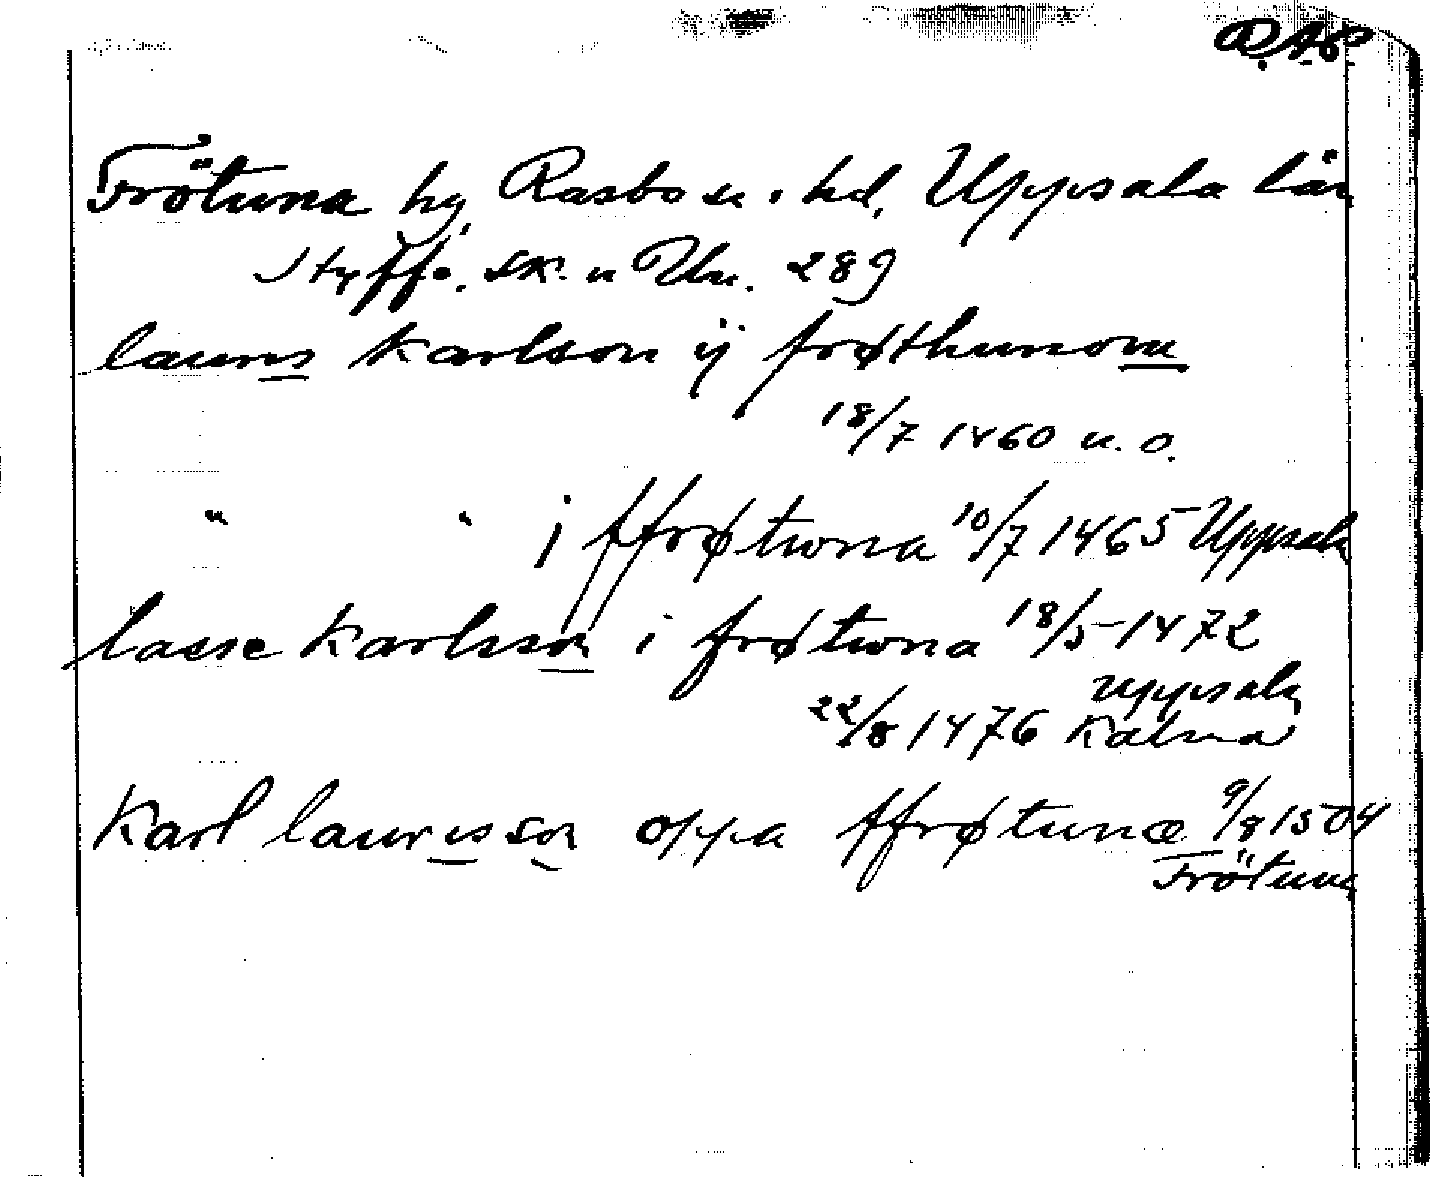 R.A.P.
Frötuna hg, Rasbo sn o. hd, Uppsala län
Styffe. SK. u Un. 289
lauris Karlson ij frøthunom
18/7 1460 u.o.
" " j ffrøtuna 10/7 1465 Uppsala
lasse Karlsson i frøtuna 18/5 1472
Uppsala
22/8 1476 Kalmar
Karl laurisson oppa ffrøtunæ 9/8 1504
Frötuna